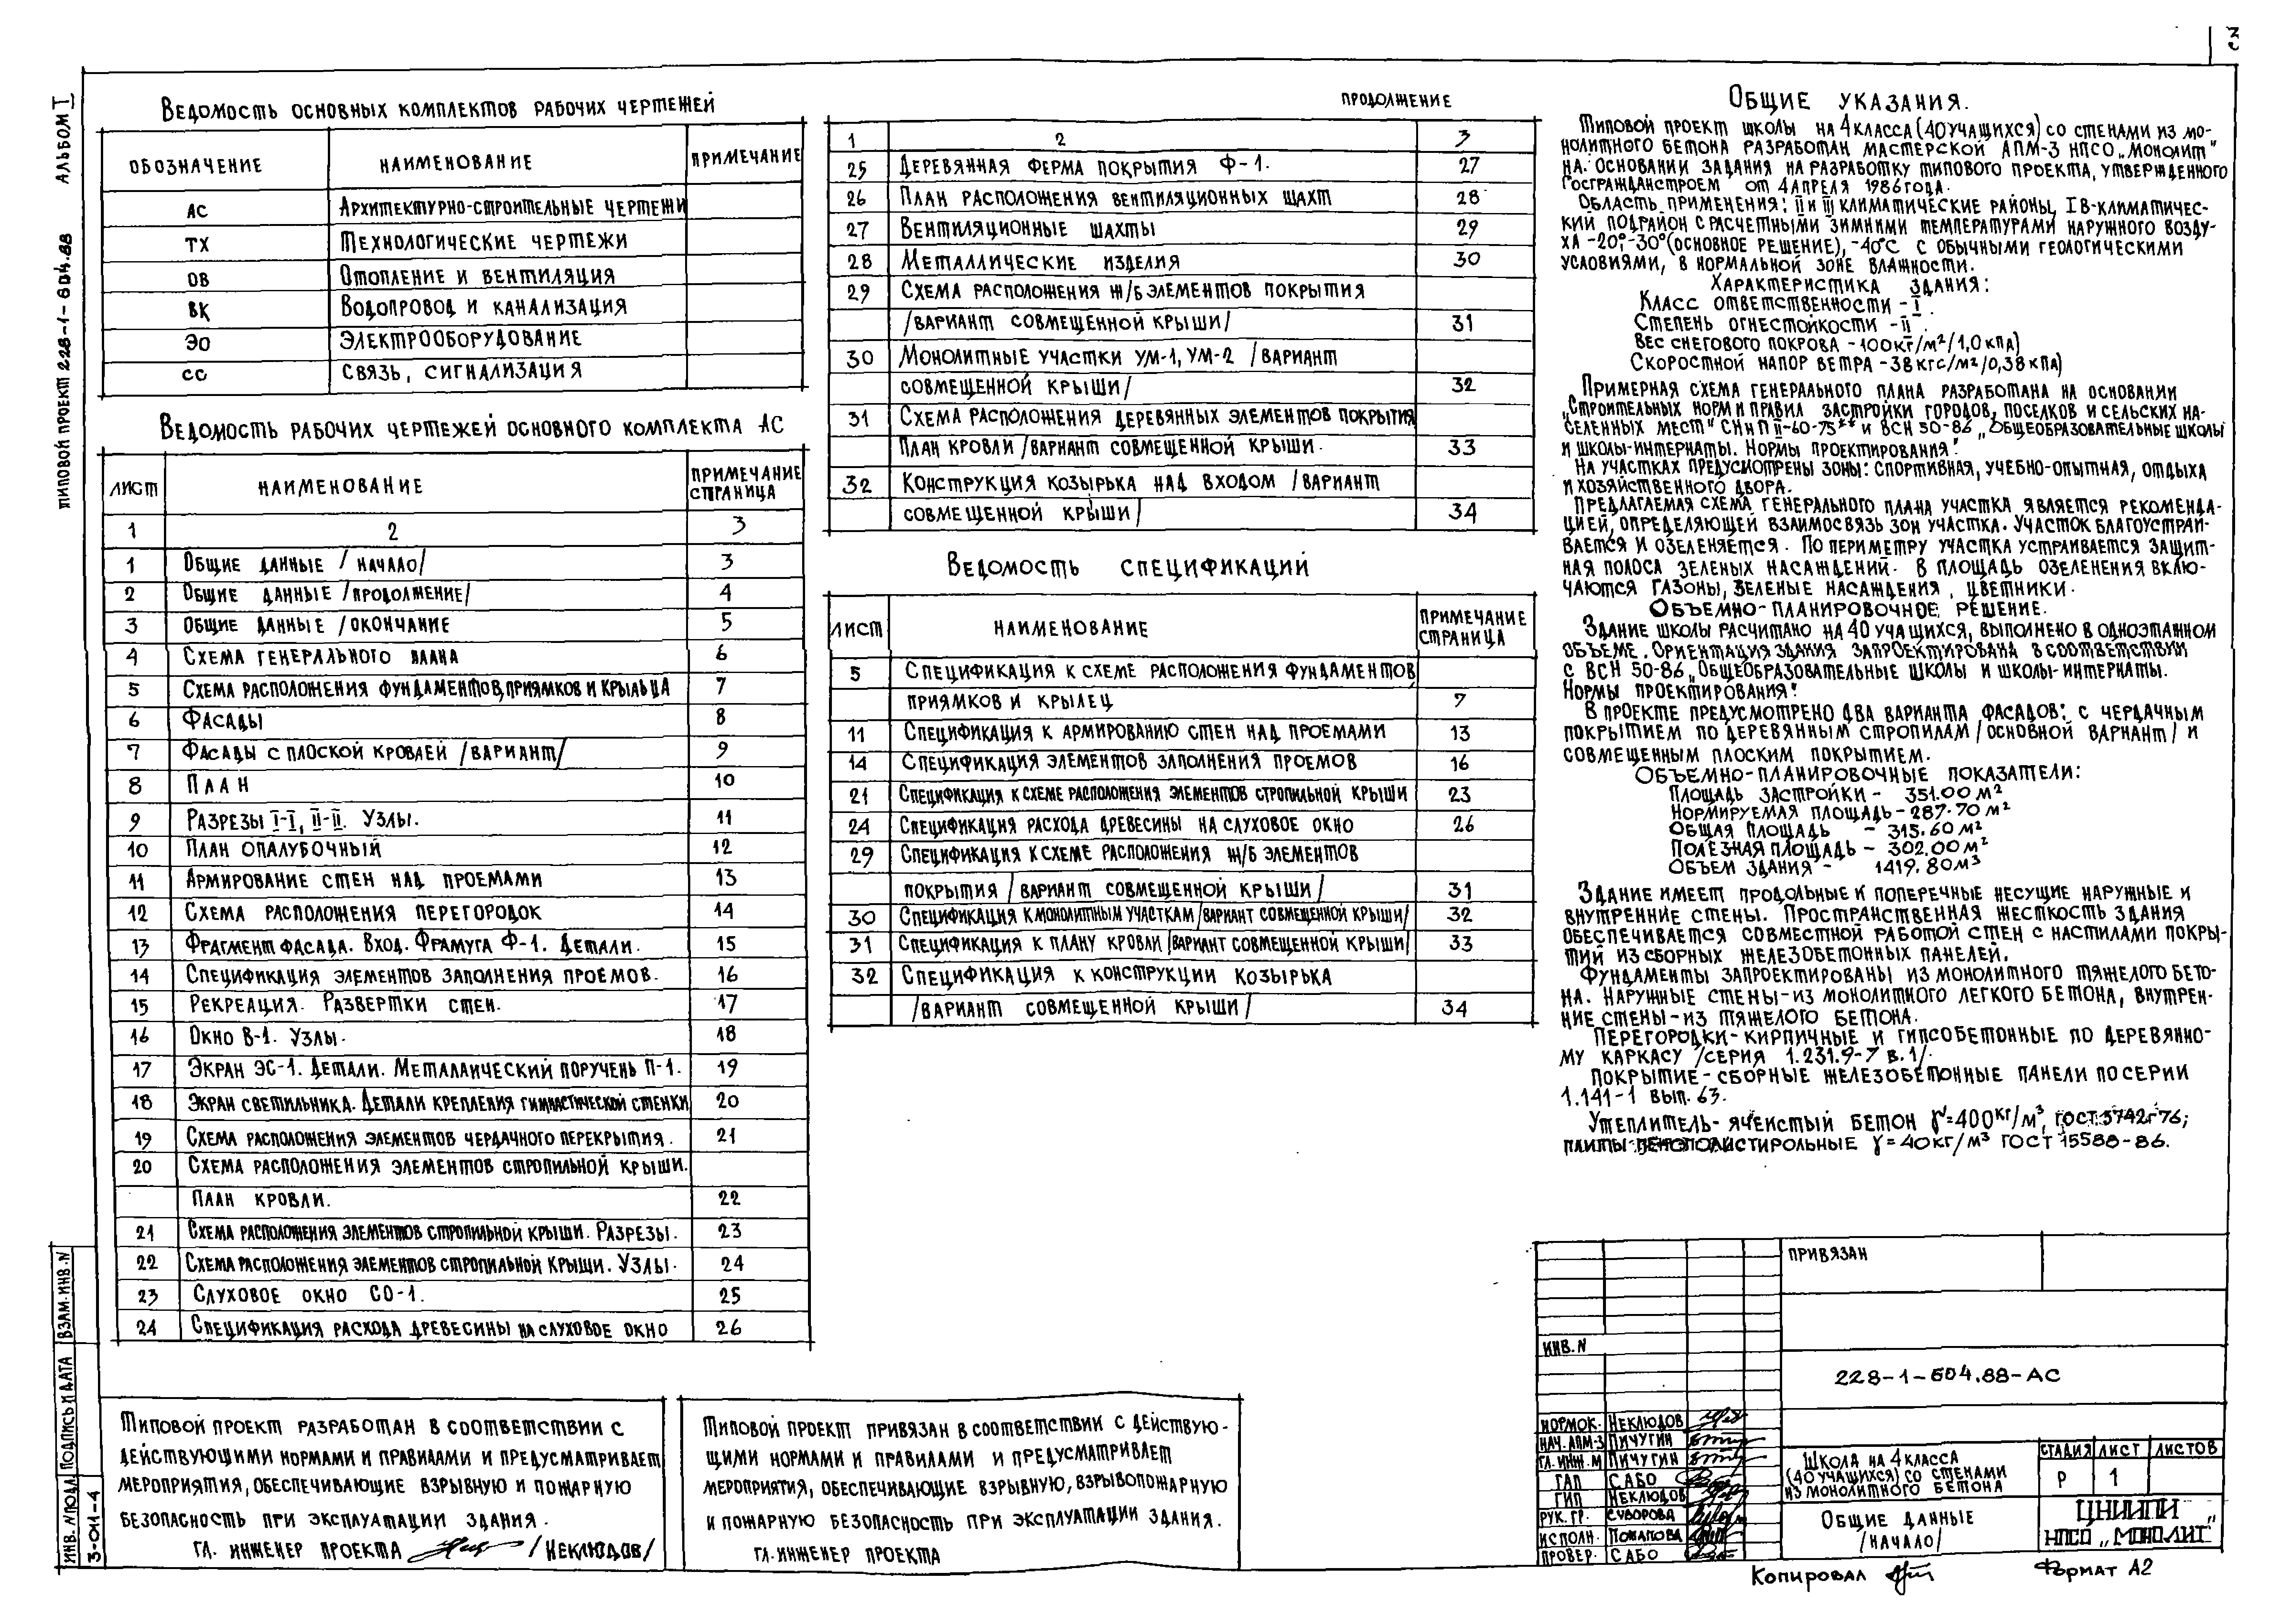 3
Альбом I
Типовой проект 228-1-604.88
Ведомость основных комплектов рабочих чертежей
Обозначение Наименование Примечание
АС Архитектурно-строительные чертежи
ТХ Технологические чертежи
ОВ Отопление и вентиляция
ВК Водопровод и канализация
ЭО Электрооборудование
СС Связь, сигнализация
Ведомость рабочих чертежей основного комплекта АС
Лист Наименование Примечание страница
1 2 3
1 Общие данные /начало/ 3
2 Общие данные /продолжение/ 4
3 Общие данные /окончание 5
4 Схема генерального плана 6
5 Схема расположения фундаментов, приямков и крыльца 7
6 Фасады 8
7 Фасады с плоской кровлей /вариант/ 9
8 План 10
9 Разрезы I-I, II-II. Узлы. 11
10 План опалубочный 12
11 Армирование стен над проемами 13
12 Схема расположения перегородок 14
13 Фрагмент фасада. Вход. Фрамуга Ф-1. Детали. 15
14 Спецификация элементов заполнения проемов. 16
15 Рекреация. Развертки стен. 17
16 Окно В-1. Узлы. 18
17 Экран ЭС-1. Детали. Металлический поручень П-1. 19
18 Экран светильника. Детали крепления гимнастической стенки 20
19 Схема расположения элементов чердачного перекрытия. 21
20 Схема расположения элементов стропильной крыши.
План кровли. 22
21 Схема расположения элементов стропильной крыши. Разрезы. 23
22 Схема расположения элементов стропильной крыши. Узлы. 24
23 Слуховое окно СО-1. 25
24 Спецификация расхода древесины на слуховое окно 26
Продолжение
1 2 3
25 Деревянная ферма покрытия Ф-1. 27
26 План расположения вентиляционных шахт 28
27 Вентиляционные шахты 29
28 Металлические изделия 30
29 Схема расположения ж/б элементов покрытия
/вариант совмещенной крыши/ 31
30 Монолитные участки УМ-1, УМ-2 /вариант
совмещенной крыши/ 32
31 Схема расположения деревянных элементов покрытия
План кровли /вариант совмещенной крыши. 33
32 Конструкция козырька над входом /вариант
совмещенной крыши/ 34
Ведомость спецификаций
Лист Наименование Примечание страница
5 Спецификация к схеме расположения фундаментов,
приямков и крылец 7
11 Спецификация к армированию стен над проемами 13
14 Спецификация элементов заполнения проемов 16
21 Спецификация к схеме расположения элементов стропильной крыши 23
24 Спецификация расхода древесины на слуховое окно 26
29 Спецификация к схеме расположения ж/б элементов
покрытия /вариант совмещенной крыши/ 31
30 Спецификация к монолитным участкам /вариант совмещенной крыши/ 32
31 Спецификация к плану кровли /вариант совмещенной крыши/ 33
32 Спецификация к конструкции козырька
/вариант совмещенной крыши/ 34
Общие указания.
Типовой проект школы на 4 класса (40 учащихся) со стенами из мо-
нолитного бетона разработан мастерской АПМ-3 НПСО „Монолит"
на основании задания на разработку типового проекта, утвержденного
Госгражданстроем от 4 апреля 1986 года.
Область применения: II и III климатические районы, IВ-климатичес-
кий подрайон с расчетными зимними температурами наружного возду-
ха -20°,-30°(основное решение), -40°С с обычными геологическими
условиями, в нормальной зоне влажности.
Характеристика здания:
Класс ответственности - I
Степень огнестойкости - II
Вес снегового покрова - 100кг/м²/1,0 кПа)
Скоростной напор ветра - 38 кгс/м²/0,38 кПа)
Примерная схема генерального плана разработана на основании
„Строительных норм и правил застройки городов, поселков и сельских на-
селенных мест" СНиП II-60-75** и ВСН 50-86 „Общеобразовательные школы
и школы-интернаты. Нормы проектирования".
На участках предусмотрены зоны: спортивная, учебно-опытная, отдыха
и хозяйственного двора.
Предлагаемая схема генерального плана участка является рекоменда-
цией, определяющей взаимосвязь зон участка. Участок благоустраи-
вается и озеленяется. По периметру участка устраивается защит-
ная полоса зеленых насаждений. В площадь озеленения вклю-
чаются газоны, зеленые насаждения, цветники.
Объемно-планировочное решение.
Здание школы расчитано на 40 учащихся, выполнено в одноэтажном
объеме. Ориентация здания запроектирована в соответствии
с ВСН 50-86 „Общеобразовательные школы и школы-интернаты.
Нормы проектирования".
В проекте предусмотрено два варианта фасадов: с чердачным
покрытием по деревянным стропилам /основной вариант/ и
совмещенным плоским покрытием.
Объемно-планировочные показатели:
Площадь застройки - 351.00 м²
Нормируемая площадь - 287.70 м²
Общая площадь - 315.60 м²
Полезная площадь - 302.00 м²
Объем здания - 1419.80 м³
Здание имеет продольные и поперечные несущие наружные и
внутренние стены. Пространственная жесткость здания
обеспечивается совместной работой стен с настилами покры-
тий из сборных железобетонных панелей.
Фундаменты запроектированы из монолитного тяжелого бето-
на. Наружные стены-из монолитного легкого бетона, внутрен-
ние стены-из тяжелого бетона.
Перегородки-кирпичные и гипсобетонные по деревянно-
му каркасу /серия 1.231.9-7 в.1/.
Покрытие-сборные железобетонные панели по серии
1.141-1 вып. 63.
Утеплитель-ячеистый бетон γ=400 кг/м³, ГОСТ 5742-76;
плиты пенополистирольные γ=40кг/м³ ГОСТ 15588-86.
Типовой проект разработан в соответствии с
действующими нормами и правилами и предусматривает
мероприятия, обеспечивающие взрывную и пожарную
безопасность при эксплуатации здания.
Гл. инженер проекта /Неклюдов/
Типовой проект привязан в соответствии с действую-
щими нормами и правилами и предусматривает
мероприятия, обеспечивающие взрывную, взрывопожарную
и пожарную безопасность при эксплуатации здания.
Гл. инженер проекта
Взам. инв. N
Подпись и дата
Инв. N подл.
3-011-4
Привязан
Инв. N
228-1-604.88-АС
Нормок. Неклюдов
Нач. АПМ-3 Пичугин
Гл. инж. М Пичугин
ГАП Сабо
ГИП Неклюдов
Рук. гр. Суворова
Исполн. Потапова
Провер. Сабо
Школа на 4 класса
(40 учащихся) со стенами
из монолитного бетона
Стадия Лист Листов
Р 1
Общие данные
/начало/
ЦНИИПИ
НПСО „Монолит"
Копировал
Формат А2